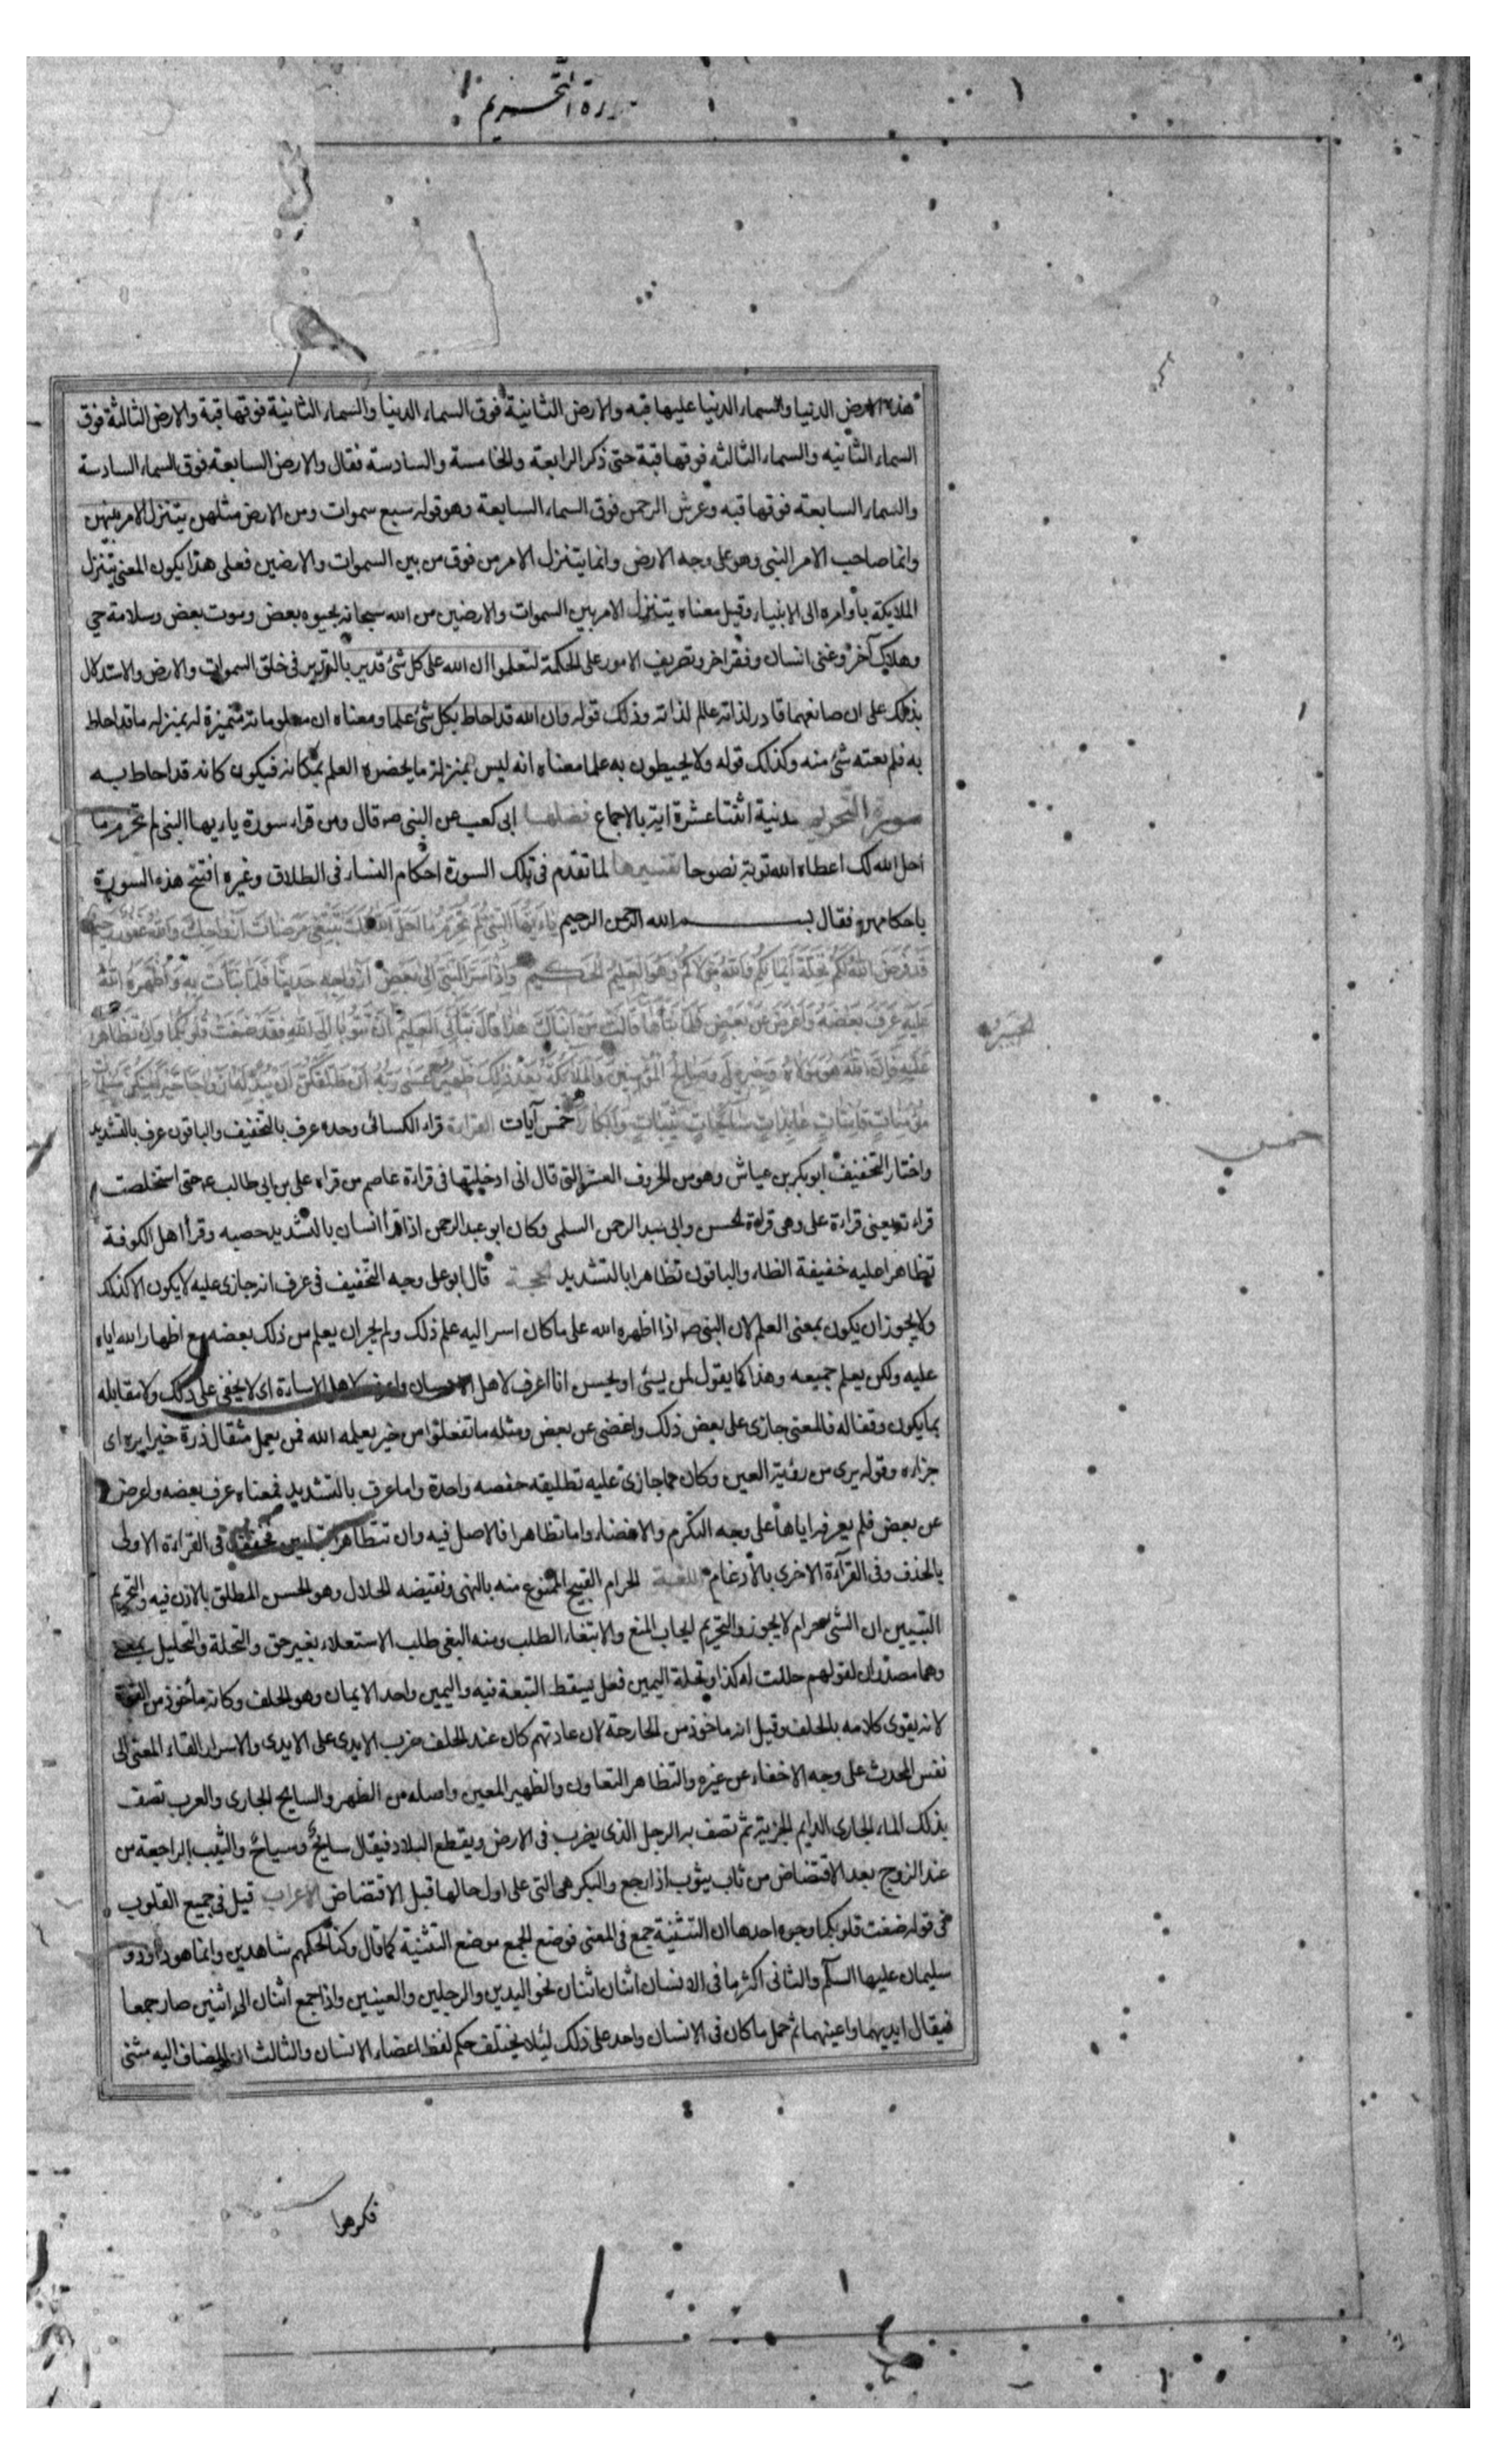 سورة التحريم
هذه الارض الدنيا والسماء الدنيا عليها قبه والارض الثانية فوق السماء الدنيا والسماء الثانية فوقها قبة والارض الثالثة فوق
السماء الثانيه والسماء الثالثه فوقها قبة حتى ذكر الرابعة والخامسة والسادسة فقال والارض السابعة فوق السماء السادسة
والسماء السابعة فوقها قبه وعرش الرحمن فوق السماء السابعة وهو قوله سبع سموات ومن الارض مثلهن يتنزل الامر بينهن
وانما صاحب الامر النبى وهو على وجه الارض وانما يتنزل الامر من فوق من بين السموات والارضين فعلى هذا يكون المعنى يتنزل
الملايكة باوامره الى الانبياء وقيل معناه يتنزل الامر بين السموات والارضين من الله سبحانه بحيوه بعض وموت بعض وسلامة حي
وهلاك آخر وغنى انسان وفقر اخر وتصريف الامور على الحكمة لتعلموا ان الله على كل شئ قدير بالتدبير فى خلق السموات والارض والاستدلال
بذلك على ان صانعهما قادر لذاته عالم لذاته وذلك قوله وان الله قد احاط بكل شئ علما ومعناه ان معلوماته متميزة له بمنزله ما قد احاط
به فلم يفته شئ منه وكذلك قوله ولا يحيطون به علما معناه انه ليس بمنزلة ما يحضره العلم بمكانه فيكون كانه قد احاط به
سورة التحريم مدنية اثنتا عشرة اية بالاجماع فضلها ابى كعب عن النبى ص قال ومن قراء سورة ياءيها النبى لم تحرم ما
احل الله لك اعطاه الله توبة نصوحا تفسيرها لما تقدم فى تلك السورة احكام النساء فى الطلاق وغيره افتتح هذه السورة
باحكامهن فقال بسم الله الرحمن الرحيم ياءيها النبى لم تحرم ما احل الله لك تبتغى مرضات ازواجك والله غفور رحيم
قد فرض الله لكم تحلة ايمانكم والله مولاكم وهو العليم الحكيم واذ اسر النبى الى بعض ازواجه حديثا فلما نبأت به واظهره الله
عليه عرف بعضه واعرض عن بعض فلما نبأها قالت من انباك هذا قال نبأنى العليم ان تتوبا الى الله فقد صغت قلوبكما وان تظاهرا
الخبير
عليه فان الله هو مولاه وجبريل وصالح المؤمنين والملائكة بعد ذلك ظهير عسى ربه ان طلقكن ان يبدله ازواجا خيرا منكن مسلمات
مؤمنات قانتات عابدات سائحات ثيبات وابكارا خمس آيات القراءة قراء الكسائى وحده عرف بالتخفيف والباقون عرف بالتشديد
خمس
واختار التخفيف ابو بكر بن عياش وهو من الحروف العشر التى قال انى ادخلتها فى قراءة عاصم من قراه على بن ابى طالب ع حتى استخلصت
قراءته يعنى قراءة على وهى قراءة الحسن وابى عبد الرحمن السلمى وكان ابو عبد الرحمن اذا قرأ انسان بالتشديد حصبه وقرأ اهل الكوفة
تظاهرا عليه خفيفة الظاء والباقون تظاهرا بالتشديد الحجة قال ابو على وجه التخفيف فى عرف انه جازى عليه لا يكون الا كذلك
ولا يجوز ان يكون بمعنى العلم لان النبى ص اذا اظهره الله على ما كان اسر اليه علم ذلك ولم يجز ان يعلم من ذلك بعضه مع اظهار الله اياه
عليه ولكن يعلم جميعه وهذا كما يقول لمن يسئ او يحسن انا اعرف لاهل الاحسان واعرف لاهل الاساءة اى لا يخفى على ذلك ولا مقابله
بما يكون وفقا له فالمعنى جازى على بعض ذلك واغضى عن بعض ومثله ما تفعلوا من خير يعلمه الله فمن يعمل مثقال ذرة خيرا يره اى
جزاءه وقوله يرى من رؤية العين وكان مما جازى عليه تطليقه حفصه واحدة واما عرف بالتشديد فمعناه عرف بعضه واعرض
عن بعض فلم يعرفه اياها على وجه التكرم والاغضاء واما تظاهرا فالاصل فيه وان تتظاهرا بتاءين فخفف فى القراءة الاولى
بالحذف وفى القرآءة الاخرى بالادغام اللغة الحرام القبيح الممنوع منه بالنهى ونقيضه الحلال وهو الحسن المطلق بالاذن فيه والتحريم
التبيين ان الشئ حرام لا يجوز والتحريم ايجاب المنع والابتغاء الطلب ومنه البغى طلب الاستعلاء بغير حق والتحلة والتحليل بمعنى
وهما مصدران لقولهم حللت له كذا وتحلة اليمين فعل يسقط التبعة فيه واليمين واحد الايمان وهو الحلف وكانه ماخوذ من القوة
لانه يقوى كلامه بالحلف وقيل انه ماخوذ من الجارحة لان عادتهم كان عند الحلف ضرب الايدى على الايدى والاسرار القاء المعنى الى
نفس المحدث على وجه الاخفاء عن غيره والتظاهر التعاون والظهير المعين واصله من الظهر والسايح الجارى والعرب تصف
بذلك الماء الجارى الدايم الجرية ثم تصف به الرجل الذى يضرب فى الارض ويقطع البلاد فيقال سايح وسياح والثيب الراجعة من
عند الزوج بعد الاقتضاض من ثاب يثوب اذا رجع والبكر هى التى على اول حالها قبل الاقتضاض الاعراب قيل فى جميع القلوب
فى قوله صغت قلوبكما وجوه احدها ان التثنية جمع فى المعنى فوضع الجمع موضع التثنية كما قال وكنا لحكمهم شاهدين وانما هو داود و
سليمان عليها السلم والثانى اكثر ما فى الانسان اثنان اثنان نحو اليدين والرجلين والعينين واذا جمع اثنان الى اثنين صار جمعا
فيقال ايديهما واعينهما ثم حمل ما كان فى الانسان واحد على ذلك لئلا يختلف حكم لفظ اعضاء الانسان والثالث ان المضاف اليه مثنى
فكرهوا